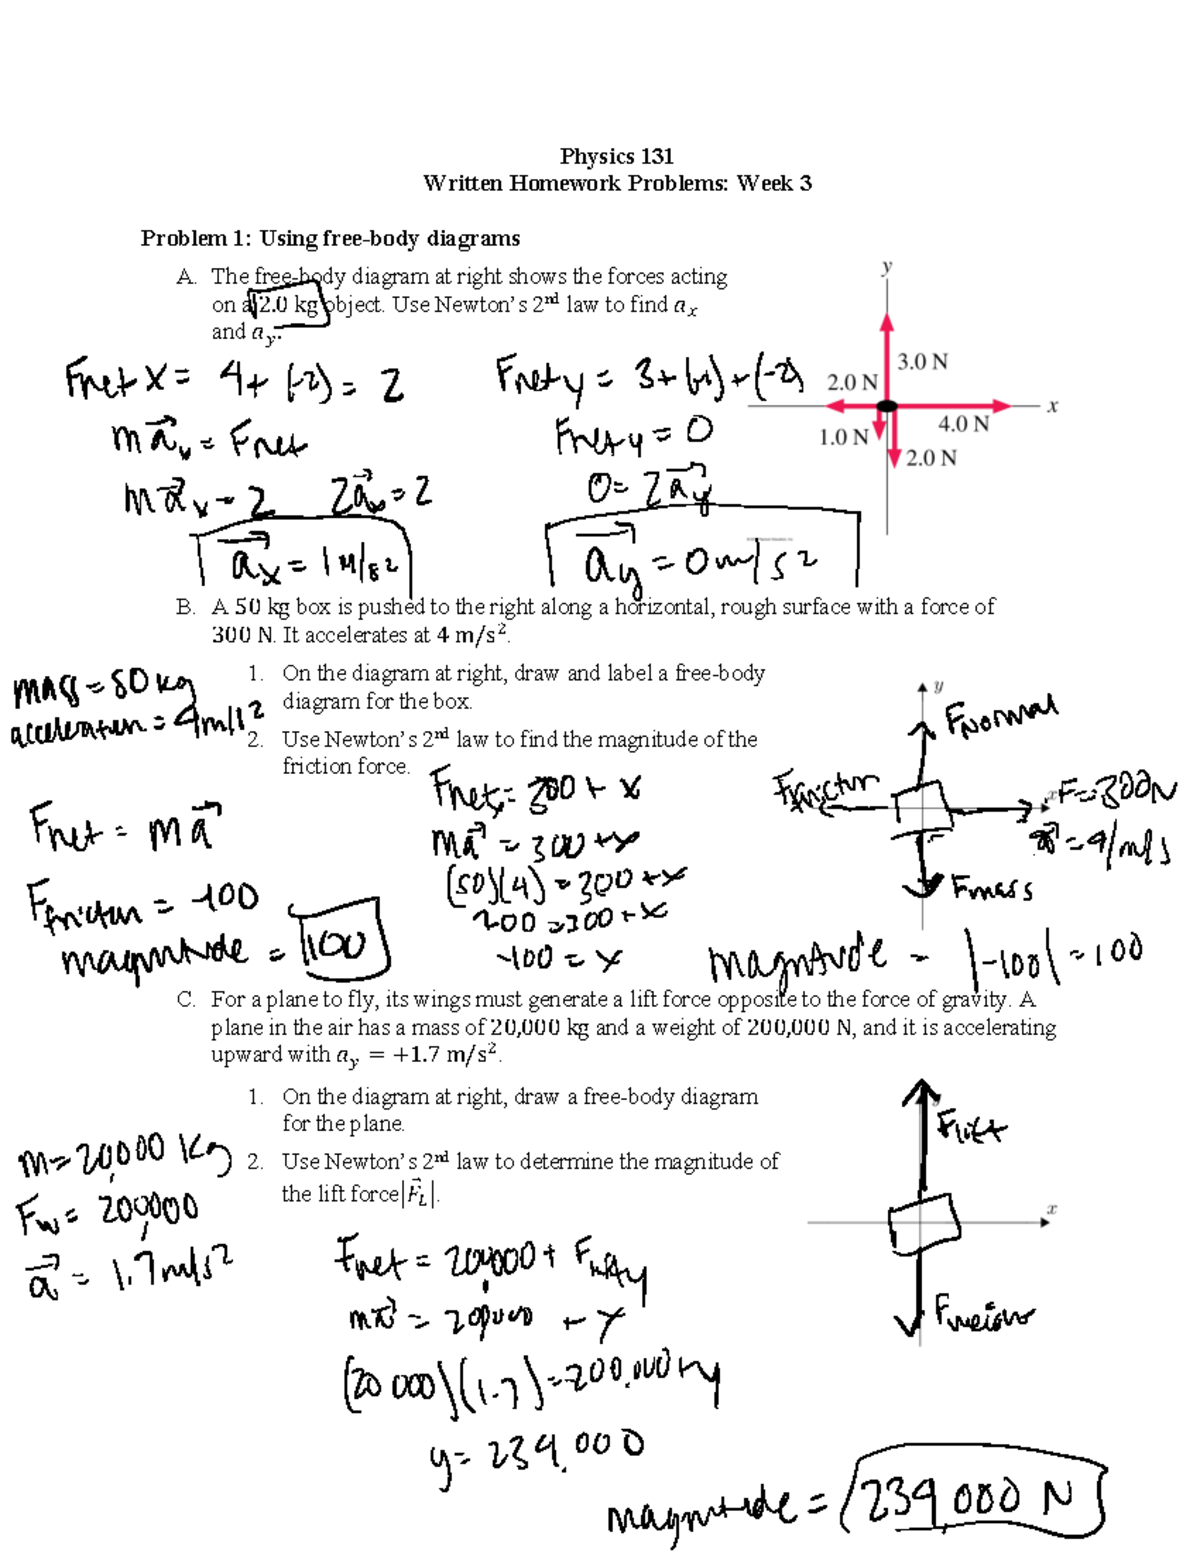 Physics 131
Written Homework Problems: Week 3
Problem 1: Using free-body diagrams
A. The free-body diagram at right shows the forces acting
on a 2.0 kg object. Use Newton's 2nd law to find a_x
and a_y.
y
3.0 N
2.0 N
x
4.0 N
1.0 N
2.0 N
Fnet x = 4 + (-2) = 2
Fnet y = 3 + (-1) + (-2)
ma⃗x = Fnet
Fnet y = 0
ma⃗x = 2 2a⃗x = 2
0 = 2a⃗y
a⃗x = 1 m/s2
a⃗y = 0 m/s2
B. A 50 kg box is pushed to the right along a horizontal, rough surface with a force of
300 N. It accelerates at 4 m/s².
1. On the diagram at right, draw and label a free-body
diagram for the box.
2. Use Newton's 2nd law to find the magnitude of the
friction force.
mass = 50 kg
acceleration = 4 m/s2
y
Fnormal
Friction
x
F = 300N
= 4/m/s
Fmass
Fnet = ma⃗
Fnetx = 300 + x
ma⃗ = 300 + x
(50)(4) = 300 + x
200 = 300 + x
-100 = x
Ffriction = -100
magnitude = 100
magnitude = |-100| = 100
C. For a plane to fly, its wings must generate a lift force opposite to the force of gravity. A
plane in the air has a mass of 20,000 kg and a weight of 200,000 N, and it is accelerating
upward with a_y = +1.7 m/s².
1. On the diagram at right, draw a free-body diagram
for the plane.
2. Use Newton's 2nd law to determine the magnitude of
the lift force |F⃗_L|.
Flift
x
Fweight
m = 20,000 kg
Fw = 200,000
a⃗ = 1.7 m/s2
Fnet = 200,000 +
ma⃗ = 200,000 + y
(20 000)(1.7) = -200,000 + y
y = 234,000
magnitude = 234,000 N